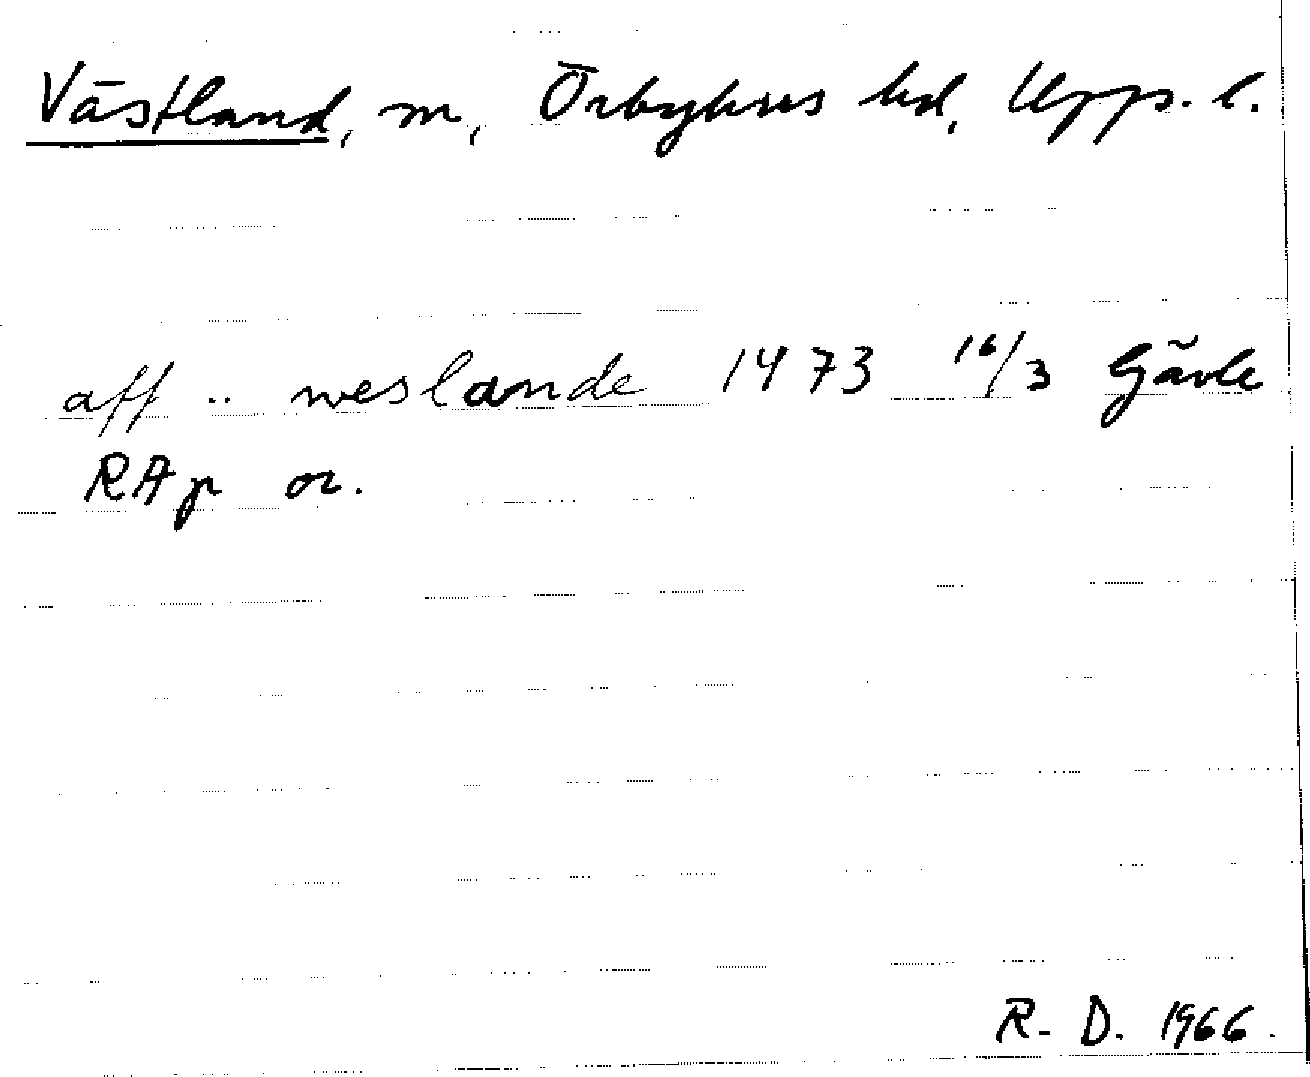 Västland, m, Örbyhus hd, Upps. l.
aff .. weslande 1473 16/3 Gävle
RAp or.
R-D. 1966.